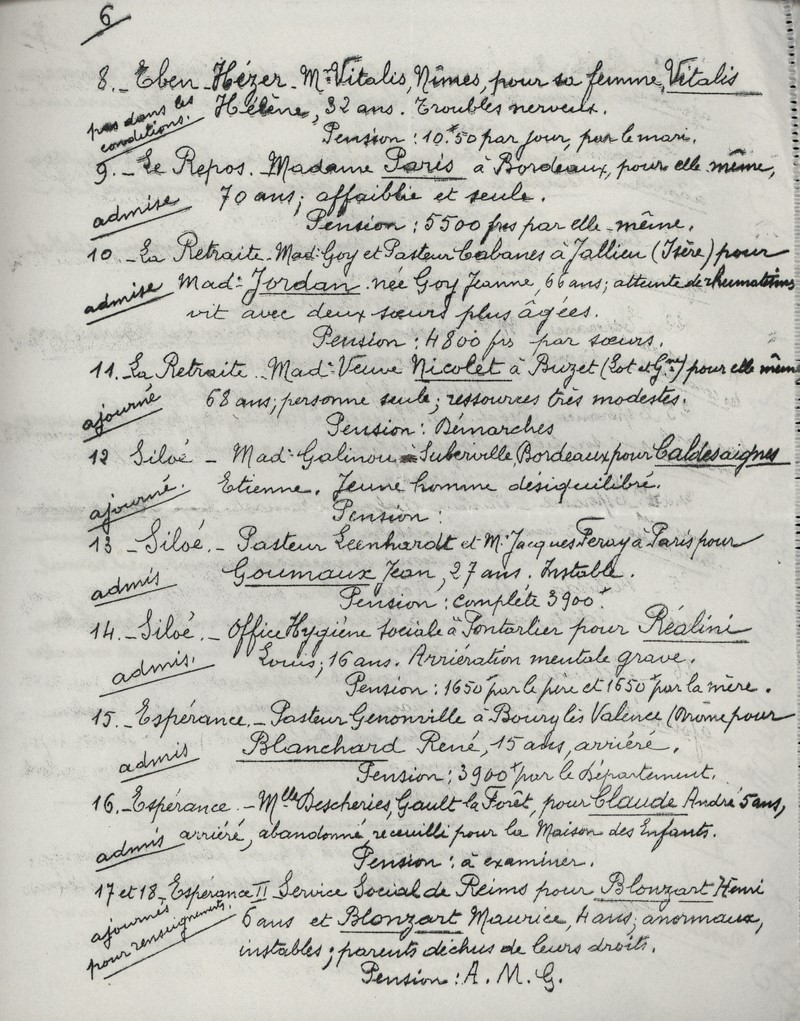 6
8._ Eben-Hézer._ Mr. Vitalis, Nîmes, pour sa femme, Vitalis
pas dans les conditions.
Hélène, 32 ans. Troubles nerveux.
Pension : 10f50 par jour, par le mari.
9._ Le Repos. Madame Paris à Bordeaux, pour elle même,
admise
70 ans ; affaiblie et seule.
Pension : 5500 frs par elle-même.
10._ La Retraite._ Mad. Goy et Pasteur Cabanes à Jallieu (Isère) pour
admise
Mad. Jordan née Goy Jeanne, 66 ans ; atteinte de rhumatisme
vit avec deux sœurs plus âgées.
Pension : 4800 frs par sœurs.
11. La Retraite._ Mad. Veuve Nicolet à Buzet (Lot et Gne) pour elle même
ajourné
68 ans ; personne seule ; ressources très modestes.
Pension : Démarches
12 Siloé _ Mad. Galinou Suberville, Bordeaux pour Caldesaignes
ajourné.
Etienne. Jeune homme désiquilibré.
Pension :
13 _ Siloé._ Pasteur Leenhardt et Mr Jacques Feray à Paris pour
admis
Goumaux Jean, 27 ans. Instable.
Pension : complète 3900f.
14._ Siloé._ Office Hygiène sociale à Pontarlier pour Réalini
admis.
Louis ; 16 ans. Arriération mentale grave.
Pension : 1650f par le père et 1650f par la mère.
15._ Espérance._ Pasteur Genonville à Bourg lès Valence (Drôme pour
admis
Blanchard René, 15 ans, arriéré.
Pension ; 3900f par le Département.
16._ Espérance._ Mlle Descheries, Gault la Forêt, pour Claude André 5 ans,
admis
arriéré, abandonné, receuilli pour la Maison des Enfants.
Pension : à examiner.
17 et 18_ Espérance II_ Service Social de Reims pour Blonzart Henri
ajournés pour renseignements.
6 ans et Blonzart Maurice, 4 ans ; anormaux,
instables ; parents déchus de leurs droits.
Pension : A. M. G.